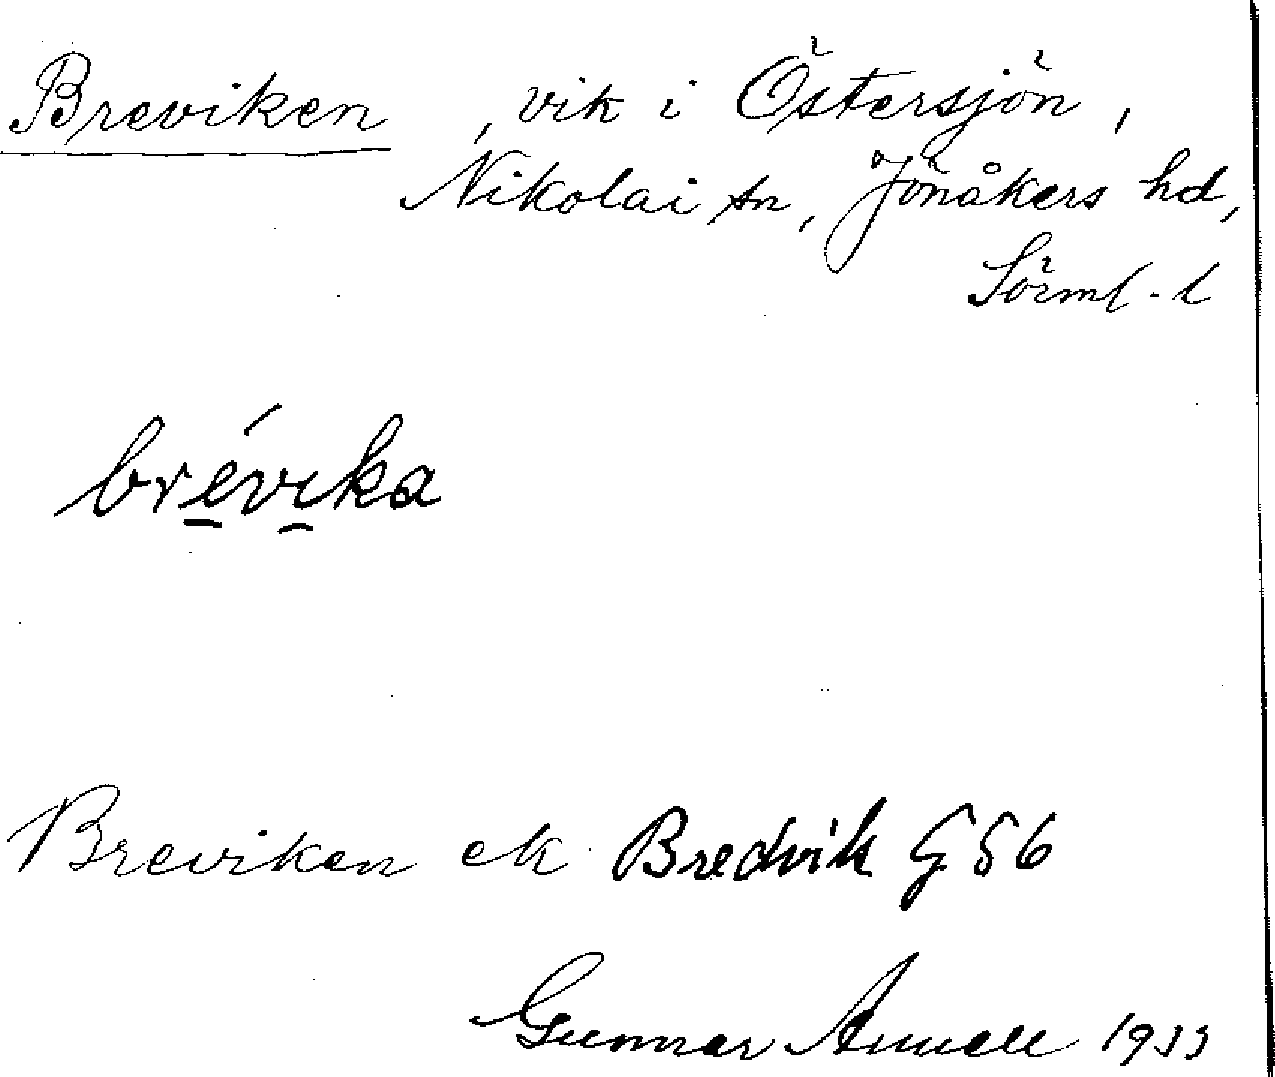 Breviken, vik i Östersjön,
Nikolai sn, Jönåkers hd,
Sörml. l
brévika
Breviken ek Bredvik G S6
Gunnar 1933